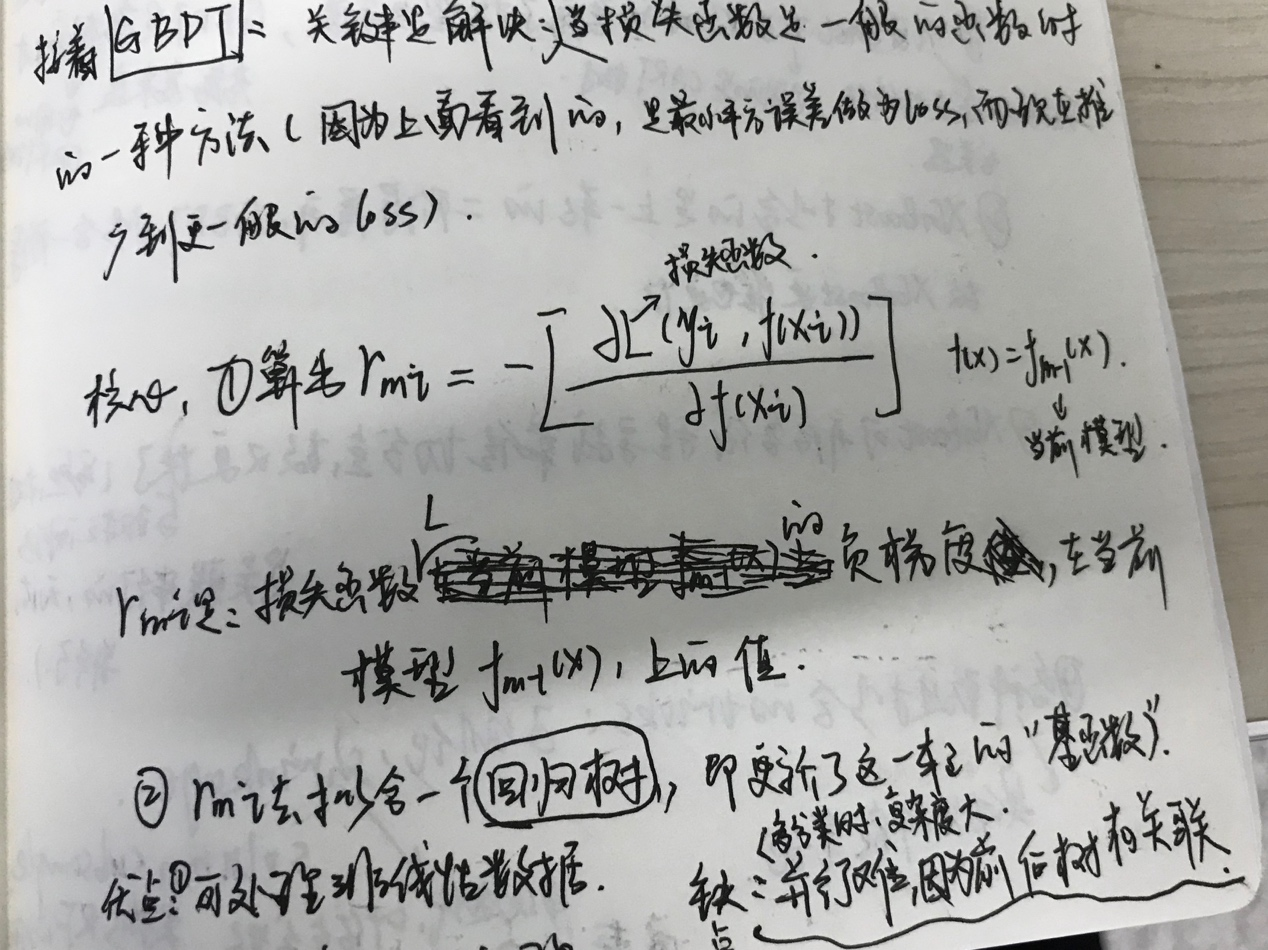 接着 GBDT: 关键是解决:当损失函数是一般的函数时
的一种方法(因为上面看到的,是最小平方误差做为loss,而现在推
广到更一般的loss).
损失函数.
核心, ①算出 rmi = -[∂L(yi, f(xi)) / ∂f(xi)] f(x)=fm-1(x).
当前模型.
rmi是:损失函数L的负梯度,在当前
模型 fm-1(x), 上的值.
② rmi去拟合一个回归树, 即更新了这一轮的"基函数".
(多分类时,复杂度大.
优点:①可处理非线性数据. 缺点:并行难,因为前后树相关联.